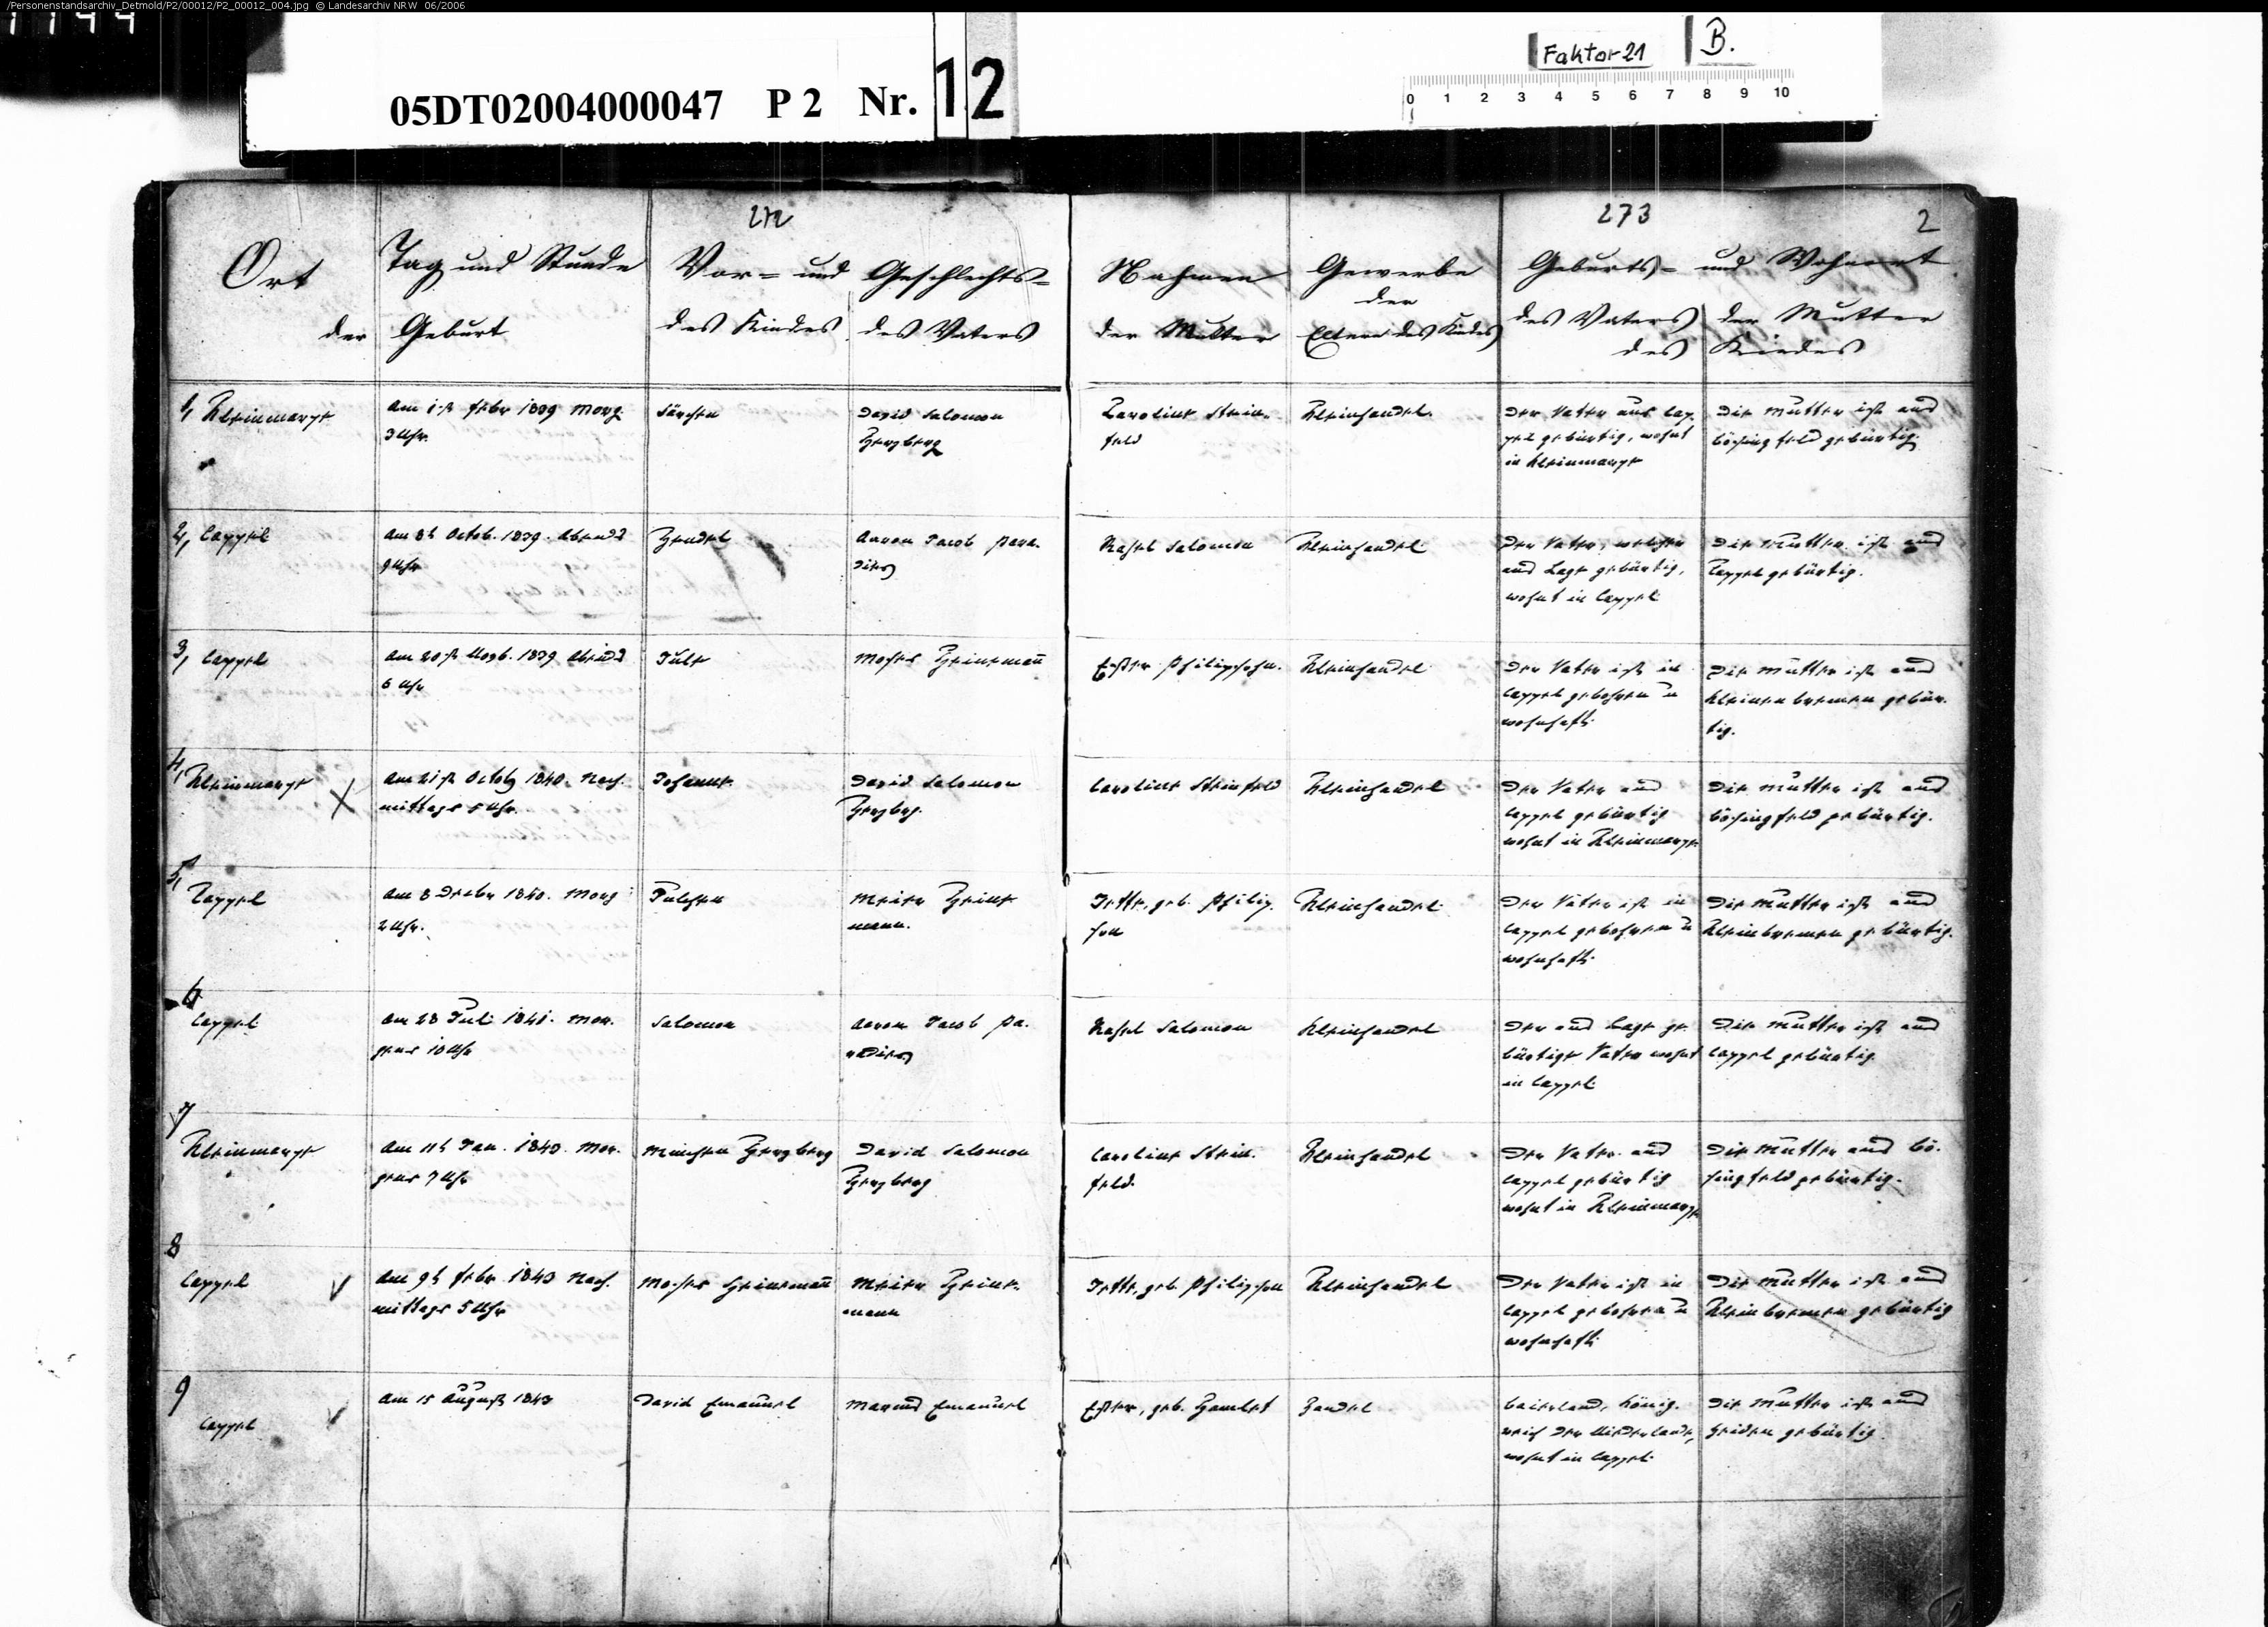 /Personenstandsarchiv_Detmold/P2/00012/P2_00012_004.jpg © Landesarchiv NRW 06/2006
1144
Faktor 21 B.
05DT02004000047 P 2 Nr. 12
0 1 2 3 4 5 6 7 8 9 10
272
273
2
Ort
der
Tag und Stunde
Geburt
Vor- und Geschlechts-
des Kindes
des Vaters
Nahmen
der Mutter
Gewerbe
der
Eltern des Kindes
Geburts- und Wohnort
des Vaters
der Mutter
des Kindes
1, Kleinmarpe
Am 1st Febr 1839 Morg.
3 Uhr.
Särchen
David Salomon
Herzberg
Caroline Stein-
feld
Kleinhandel.
Der Vater aus Cap-
pel gebürtig, wohnt
in Kleinmarpe
Die Mutter ist aus
Bösingfeld gebürtig.
2, Cappel
Octob. 1839. Abends
9 Uhr
Hendel
Aaron Jacob Para-
dies
Rahel Salomon
Kleinhandel
Der Vater, welcher
aus Lage gebürtig,
wohnt in Cappel
Die Mutter ist aus
Cappel gebürtig.
3, Cappel
Am 20st 1839 Abends
6 Uhr
Jule
Moses Heinemann
Ester Philippsohn.
Kleinhandel
Der Vater ist in
Cappel gebohren u
wohnhaft.
Die Mutter ist aus
Kleinenbremen gebür-
tig.
4, Kleinmarpe
Am 21st Octob 1840. Nach-
mittags 5 Uhr.
Johanne
David Salomon
Herzberg.
Caroline Steinfeld
Kleinhandel
Der Vater aus
Cappel gebürtig
wohnt in Kleinmarpe
Die Mutter ist aus
Bösingfeld gebürtig.
5, Cappel
Am 8 Decbr 1840. Morg
2 Uhr.
Julchen
Meier Heine-
mann.
Jette, geb. Philip-
son
Kleinhandel
Der Vater ist in
Cappel gebohren u
wohnhaft.
Die Mutter ist aus
Kleinbremen gebürtig.
6
Cappel
Am 28 Juli 1841. Mor-
gens 10 Uhr
Salomon
Aaron Jacob Pa-
radies
Rahel Salomon
Kleinhandel
Der aus Lage ge-
bürtige Vater wohnt
in Cappel
Die Mutter ist aus
Cappel gebürtig
7
Kleinmarpe
Am 11t Jan. 1843. Mor-
gens 7 Uhr
Minchen Herzberg
David Salomon
Herzberg
Caroline Stein-
feld.
Kleinhandel
Der Vater aus
Cappel gebürtig
wohnt in Kleinmarpe
Die Mutter aus Bö-
singfeld gebürtig.
8
Cappel
Am 9t Febr 1843 Nach-
mittags 5 Uhr
Moses Heinemann
Meier Heine-
mann
Jette, geb. Philipson
Kleinhandel
Der Vater ist in
Cappel gebohren u
wohnhaft
Die Mutter ist aus
Kleinbremen gebürtig
9
Cappel
Am 15 August 1843
David Emanuel
Emanuel
Ester, geb.
Handel
König-
reich der Niederlande,
wohnt in Cappel
Die Mutter ist aus
Heiden gebürtig.